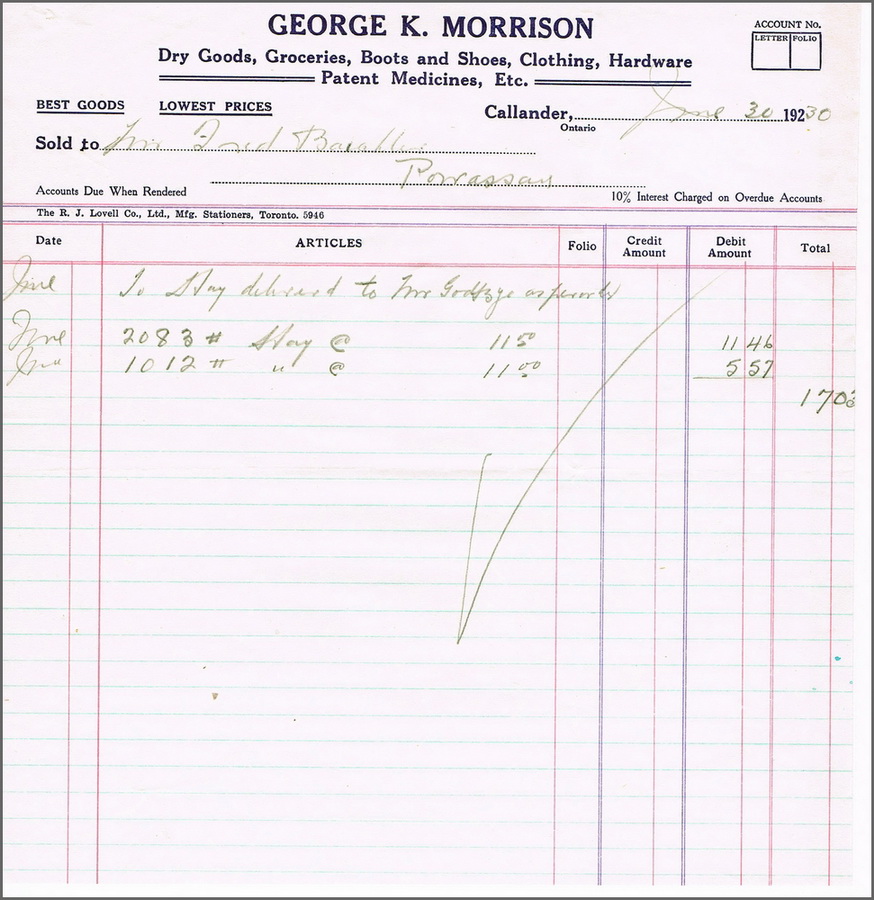 GEORGE K. MORRISON
ACCOUNT No.
LETTER FOLIO
Dry Goods, Groceries, Boots and Shoes, Clothing, Hardware
Patent Medicines, Etc.
BEST GOODS LOWEST PRICES
Callander, June 30 19230
Ontario
Sold to Mr Fred
Powassan
Accounts Due When Rendered
10% Interest Charged on Overdue Accounts
The R. J. Lovell Co., Ltd., Mfg. Stationers, Toronto. 5946
Date ARTICLES Folio Credit Amount Debit Amount Total
June To Hay delivered to Mr
June 2083 # Hay @ 11 50 11 46
June 1012 # " @ 11 00 5 57
17 03